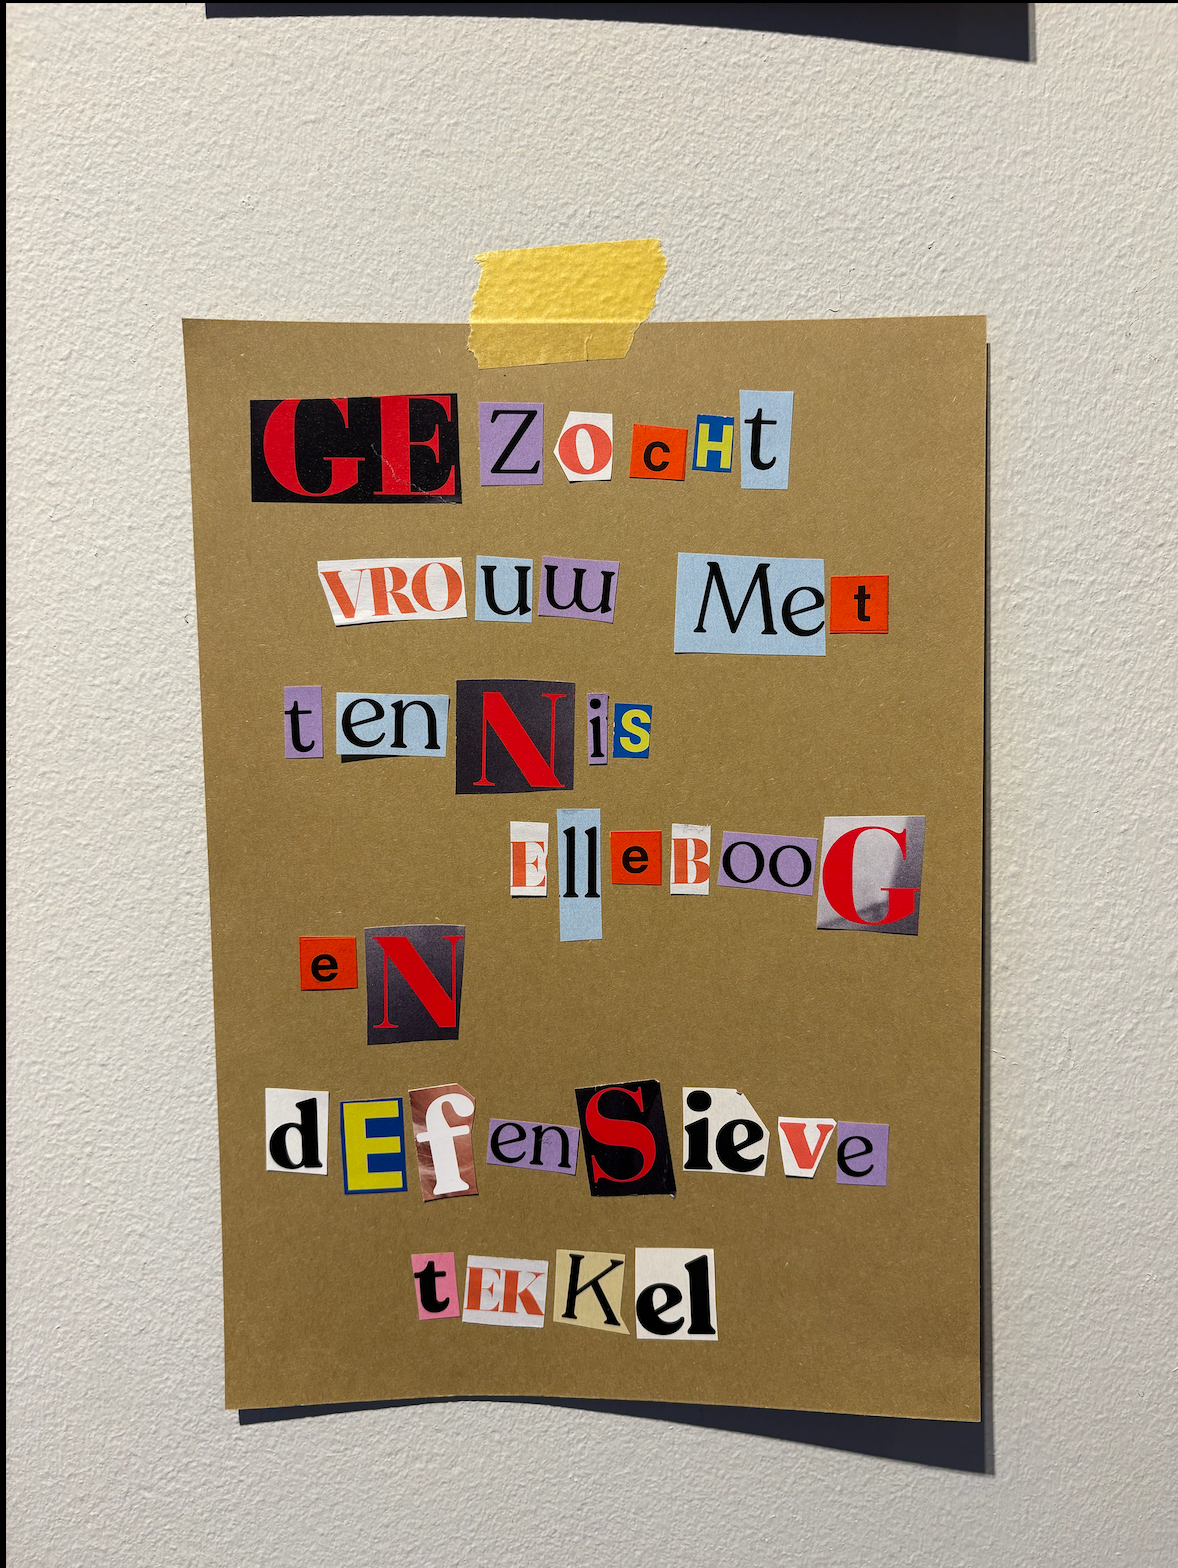 GEZocHt
VROuw Met
tenNis
ElleBooG
eN
dEfenSieve
tEKKel